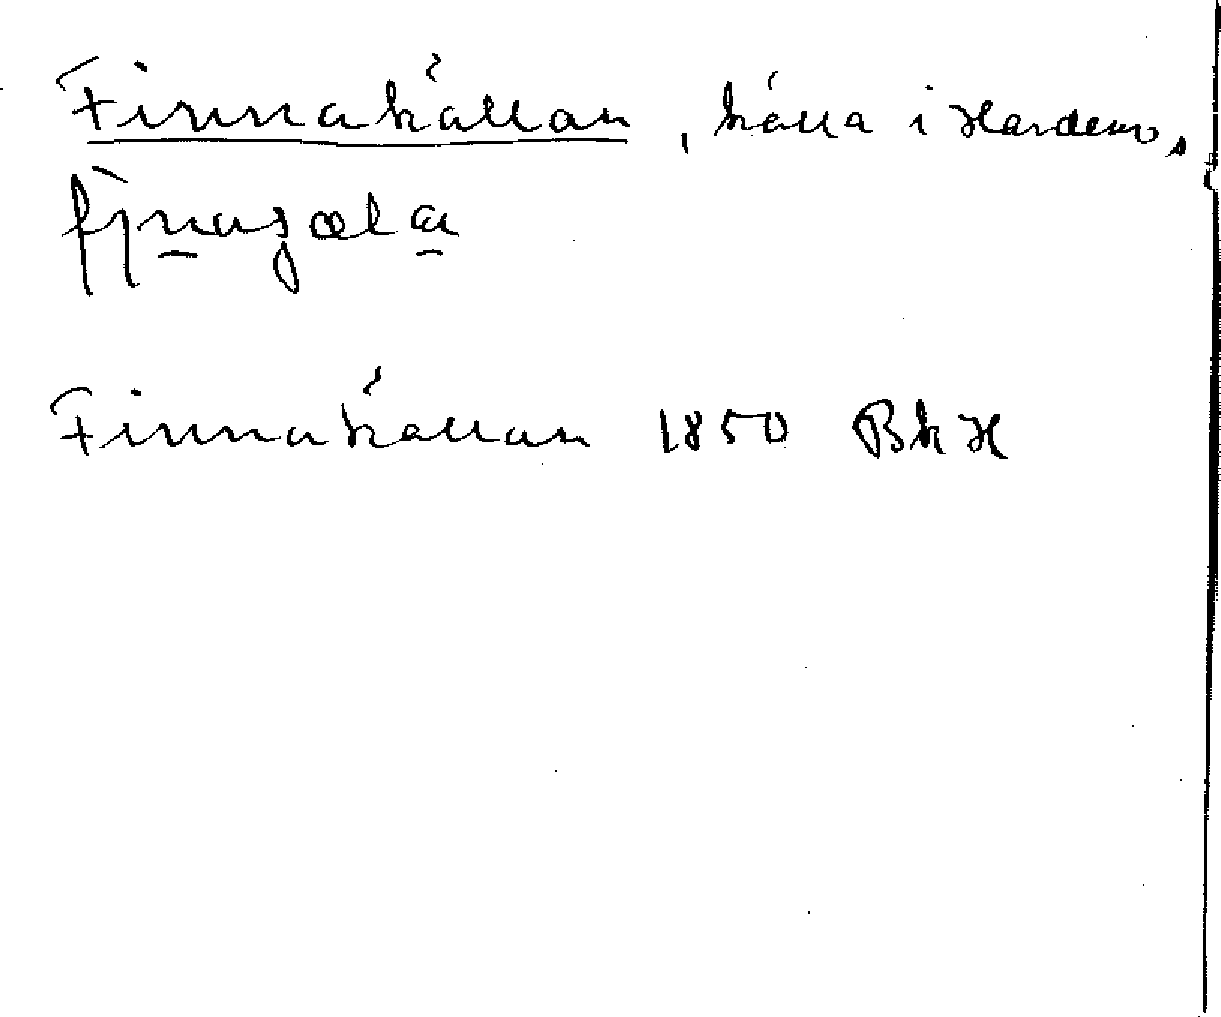 Finnakällan, källa i Hardemo,
Finnakällan 1850 BkH